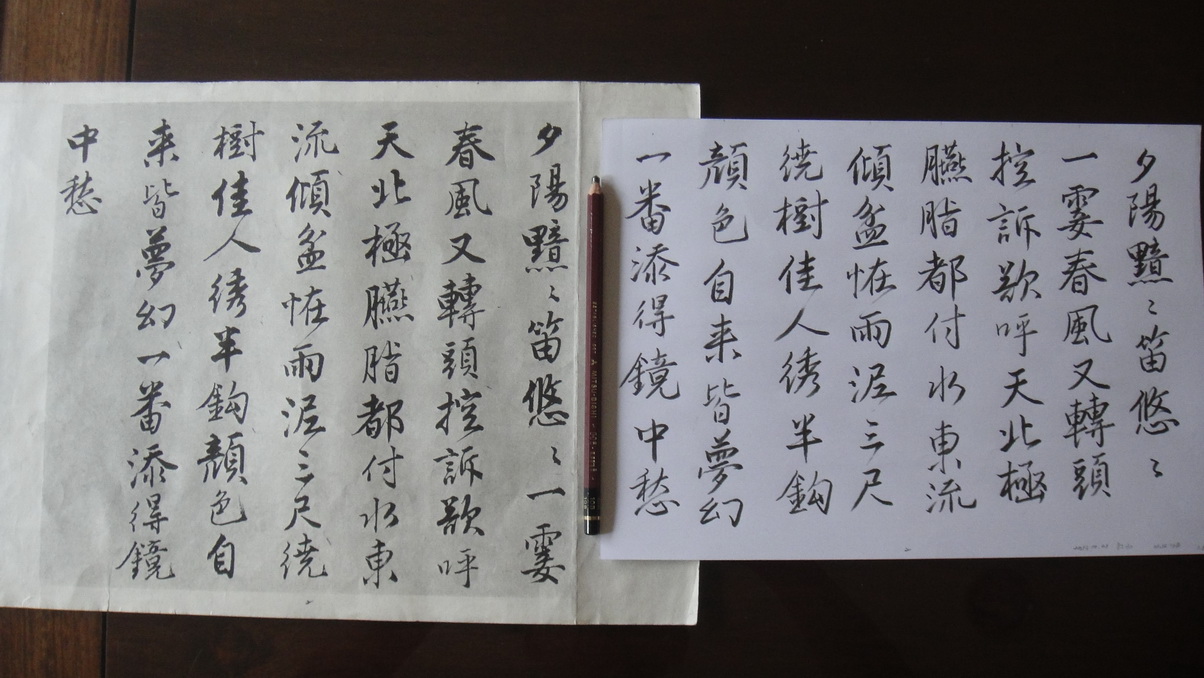 夕陽黯〻笛悠〻
一霎春風又轉頭
控訴歡呼天北極
臙脂都付水東流
傾盆恠雨泥三尺
繞樹佳人綉半鈎
顔色自来皆夢幻
一番添得鏡中愁
夕陽黯〻笛悠〻一霎
春風又轉頭控訴歡呼
天北極臙脂都付水東
流傾盆恠雨泥三尺繞
樹佳人綉半鈎顔色自
来皆夢幻一番添得鏡
中愁